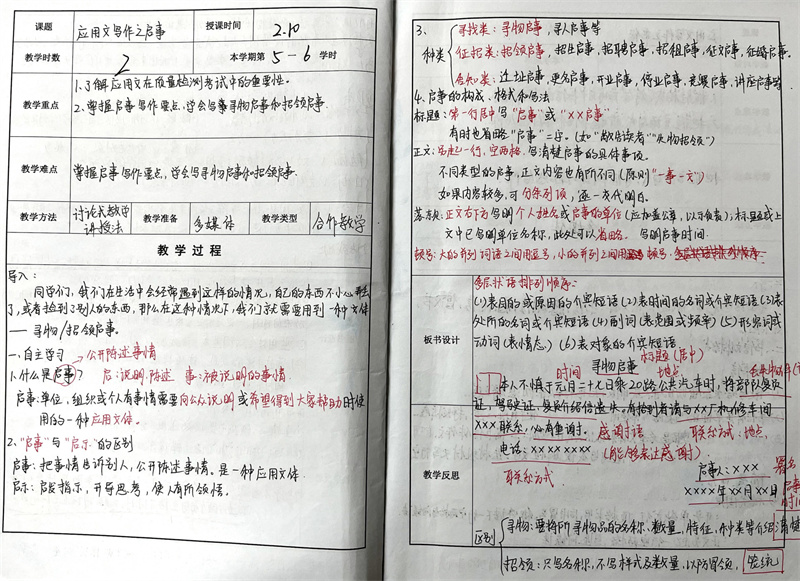 课题 应用文写作之启事 授课时间 2.10
教学时数 2 本学期第5-6学时
教学重点
1.了解应用文在质量检测考试中的重要性。
2.掌握启事写作要点,学会写寻物启事和招领启事.
教学难点
掌握启事写作要点,学会写寻物启事和招领启事.
教学方法 讨论式教学 讲授法 教学准备 多媒体 教学类型 合作教学
教学过程
导入:
同学们,我们在生活中会经常遇到这样的情况,自己的东西不小心丢
了,或者捡到了别人的东西,那么在这种情况下,我们就需要用到一种文体
——寻物/招领启事。
一、自主学习 公开陈述事情
1.什么是启事? 启:说明.陈述 事:被说明的事情
启事:单位,组织或个人有事情需要向公众说明或希望得到大家帮助时使
用的一种应用文体.
2、"启事"与"启示"的区别
启事:把事情告诉别人,公开陈述事情.是一种应用文体
启示:启发指示,开导思考,使人有所领悟.
3、种类
寻找类:寻物启事,寻人启事等
征招类:招领启事,招生启事,招聘启事,招租启事,征文启事,征婚启事.
告知类:迁址启事,更名启事,开业启事,停业启事,竞聘启事,讲座启事等
4.启事的构成、格式和写法
标题:第一行居中写"启事"或"××启事"
有时也省略"启事"二字。(如"敬告读者""失物招领")
正文:另起一行,空两格.写清楚启事的具体事项。
不同类型的启事,正文内容也有所不同(原则"一事一文")
如果内容较多,可分条列项,逐一交代明白。
落款:正文右下方写明个人姓名或启事的单位(应加盖公章,以示负责);标题或上
文中已写明单位名称,此处可以省略。写明启事时间.
顿号:大的并列词语之间用逗号,小的并列之间用顿号.
板书设计
多层状语排列顺序:
(1)表目的或原因的介宾短语(2)表时间的名词或介宾短语(3)表
处所的名词或介宾短语(4)副词(表范围或频率)(5)形容词或
动词(表情态)(6)表对象的介宾短语
寻物启事 标题(居中)
时间 地点
本人不慎于元月二十七日乘20路公共汽车时,将部队复员
证,驾驶证,复员介绍信遗失.有拾到者请与××厂机修车间
×××联系,必有重谢. 感谢语 联系方式:地点.
电话:×××××××× (能够表达感谢)
联系方式.
启事人:××× 署名
××××年××月××日 启事时间
教学反思
区别
寻物:要将所寻物品的名称、数量,特征,和种类等介绍清楚
招领:只写名称,不写样式及数量,以防冒领, 笼统